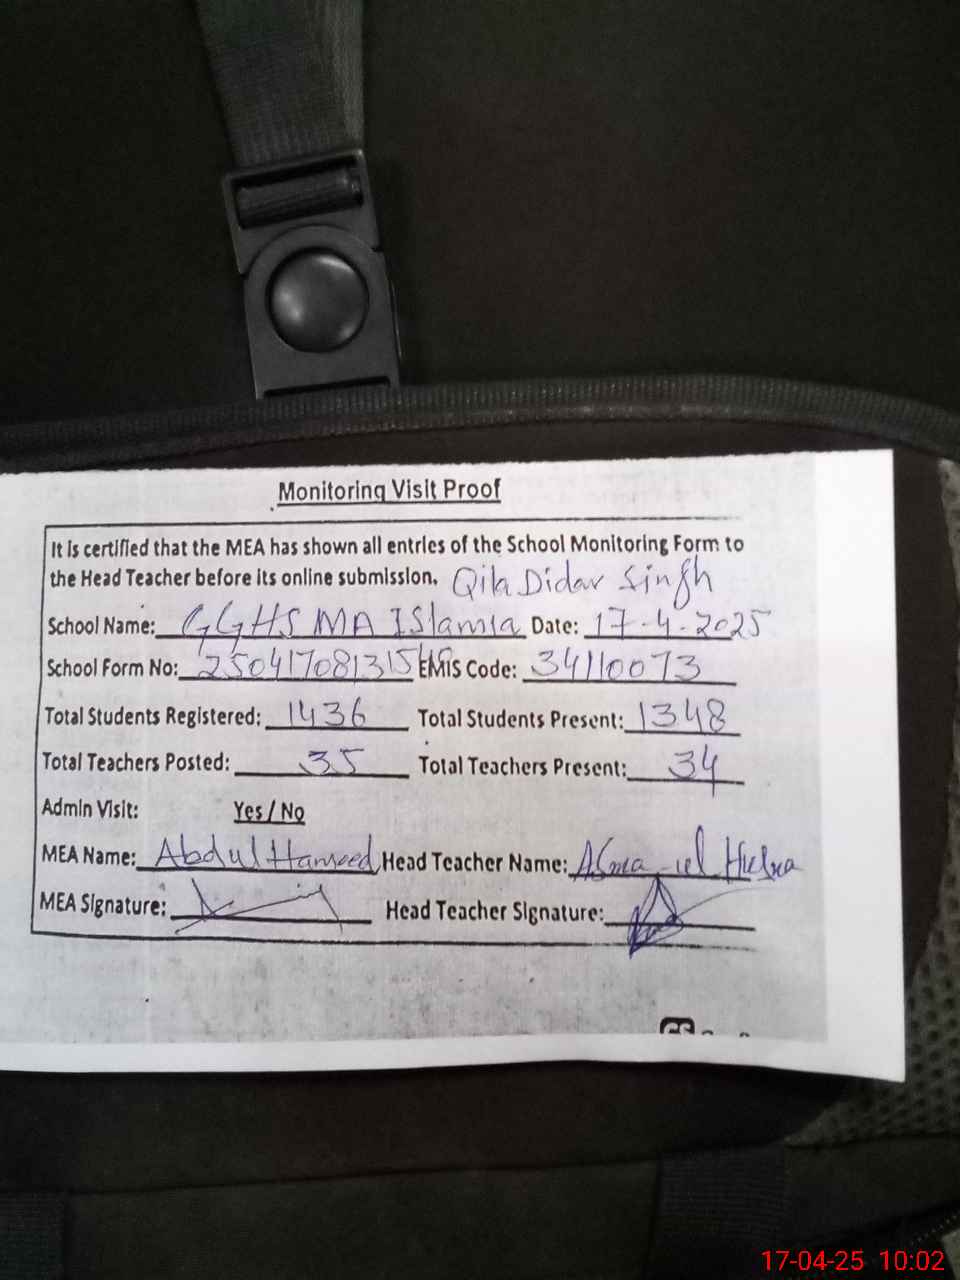 Monitoring Visit Proof
It is certified that the MEA has shown all entries of the School Monitoring Form to
the Head Teacher before its online submission. Qila Didar Singh
School Name: GGHS MA ISlamia Date: 17-4-2025
School Form No: EMIS Code: 34110073
Total Students Registered: 1436 Total Students Present: 1348
Total Teachers Posted: 35 Total Teachers Present: 34
Admin Visit: Yes / No
MEA Name: Abdul Hameed Head Teacher Name: Asma-ul Husna
MEA Signature: Head Teacher Signature:
17-04-25 10:02